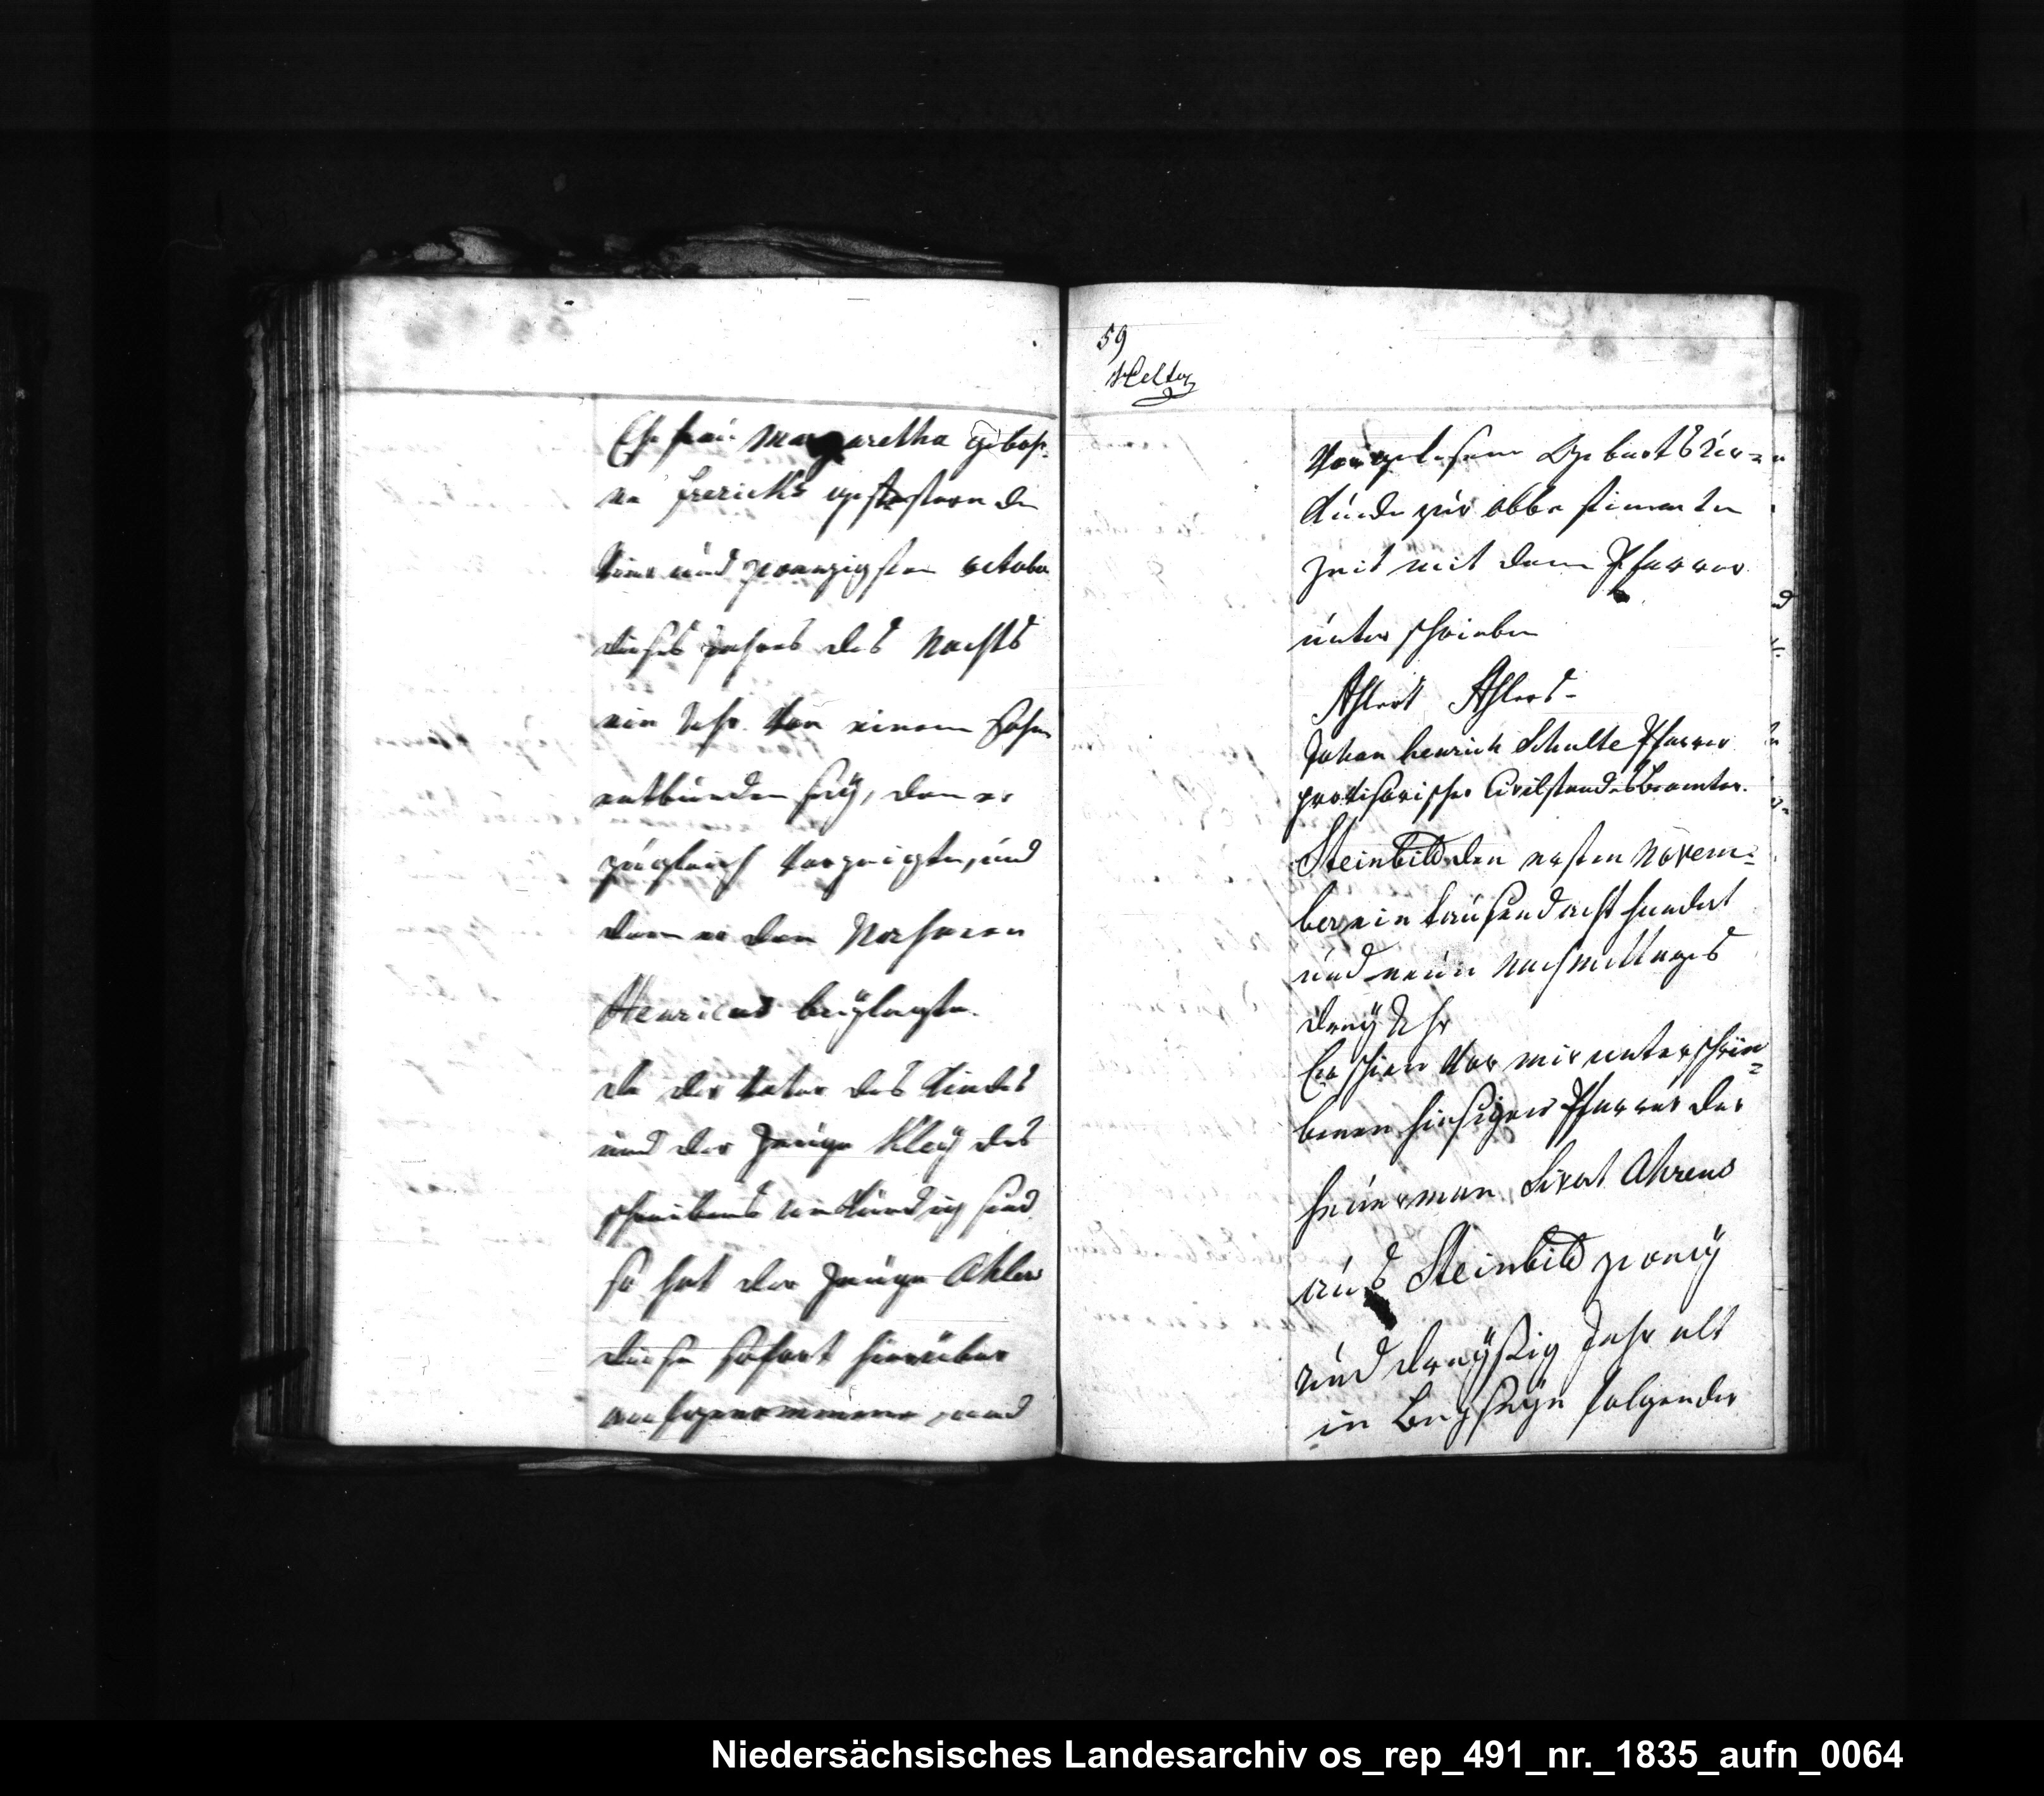 Ehefrau Margaretha geboh-
ne Frericks gestestern den
vier und zwanzigsten october
dieses Jahres des Nachts
ein Uhr von einem Sohn
entbunden seÿ, den er
zugleich vorzeigte, und
dem er den Nahmen
Henricus beÿlegte.
da der Vater des Kindes
und der Zeuge Kleÿ des
schreibens unkündig sind
so hat der Zeuge Ahlers
diese sofort hierüber
aufgenommene, und
59
vorgelesene Geburts Ur-
kunde zur obbestimmten
Zeit mit dem Pfarrer
unterschrieben
Ahlert Ahlers
Johan henrich Schulte Pfarrer
provisorischer Civilstandes Beamter.
Steinbild den ersten Novem-
ber ein tausend acht hundert
und neun Nachmittages
dreÿ Uhr
Erschien vor mir unterschrie-
benen hiesigem Pfarrer der
heuerman Sivert Ahrens
aus Steinbild zweÿ
und dreÿßig Jahr alt
in Beÿseÿn folgender
Niedersächsisches Landesarchiv os_rep_491_nr._1835_aufn_0064